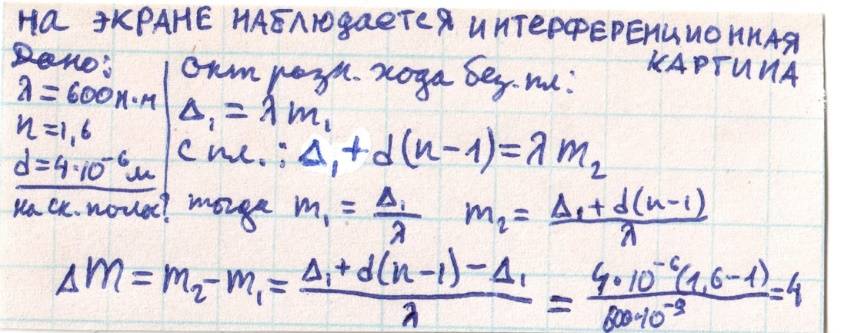 НА ЭКРАНЕ НАБЛЮДАЕТСЯ ИНТЕРФЕРЕНЦИОННАЯ
КАРТИНА
Дано:
λ = 600 н.м
n = 1,6
d = 4·10⁻⁶ м
на ск. полос?
опт разн. хода без. пл:
Δ₁ = λ m₁
с пл.: Δ₁ + d(n-1) = λ m₂
тогда m₁ = Δ₁/λ m₂ = (Δ₁ + d(n-1))/λ
Δm = m₂ - m₁ = (Δ₁ + d(n-1) - Δ₁)/λ = (4·10⁻⁶(1,6-1))/(600·10⁻⁹) = 4